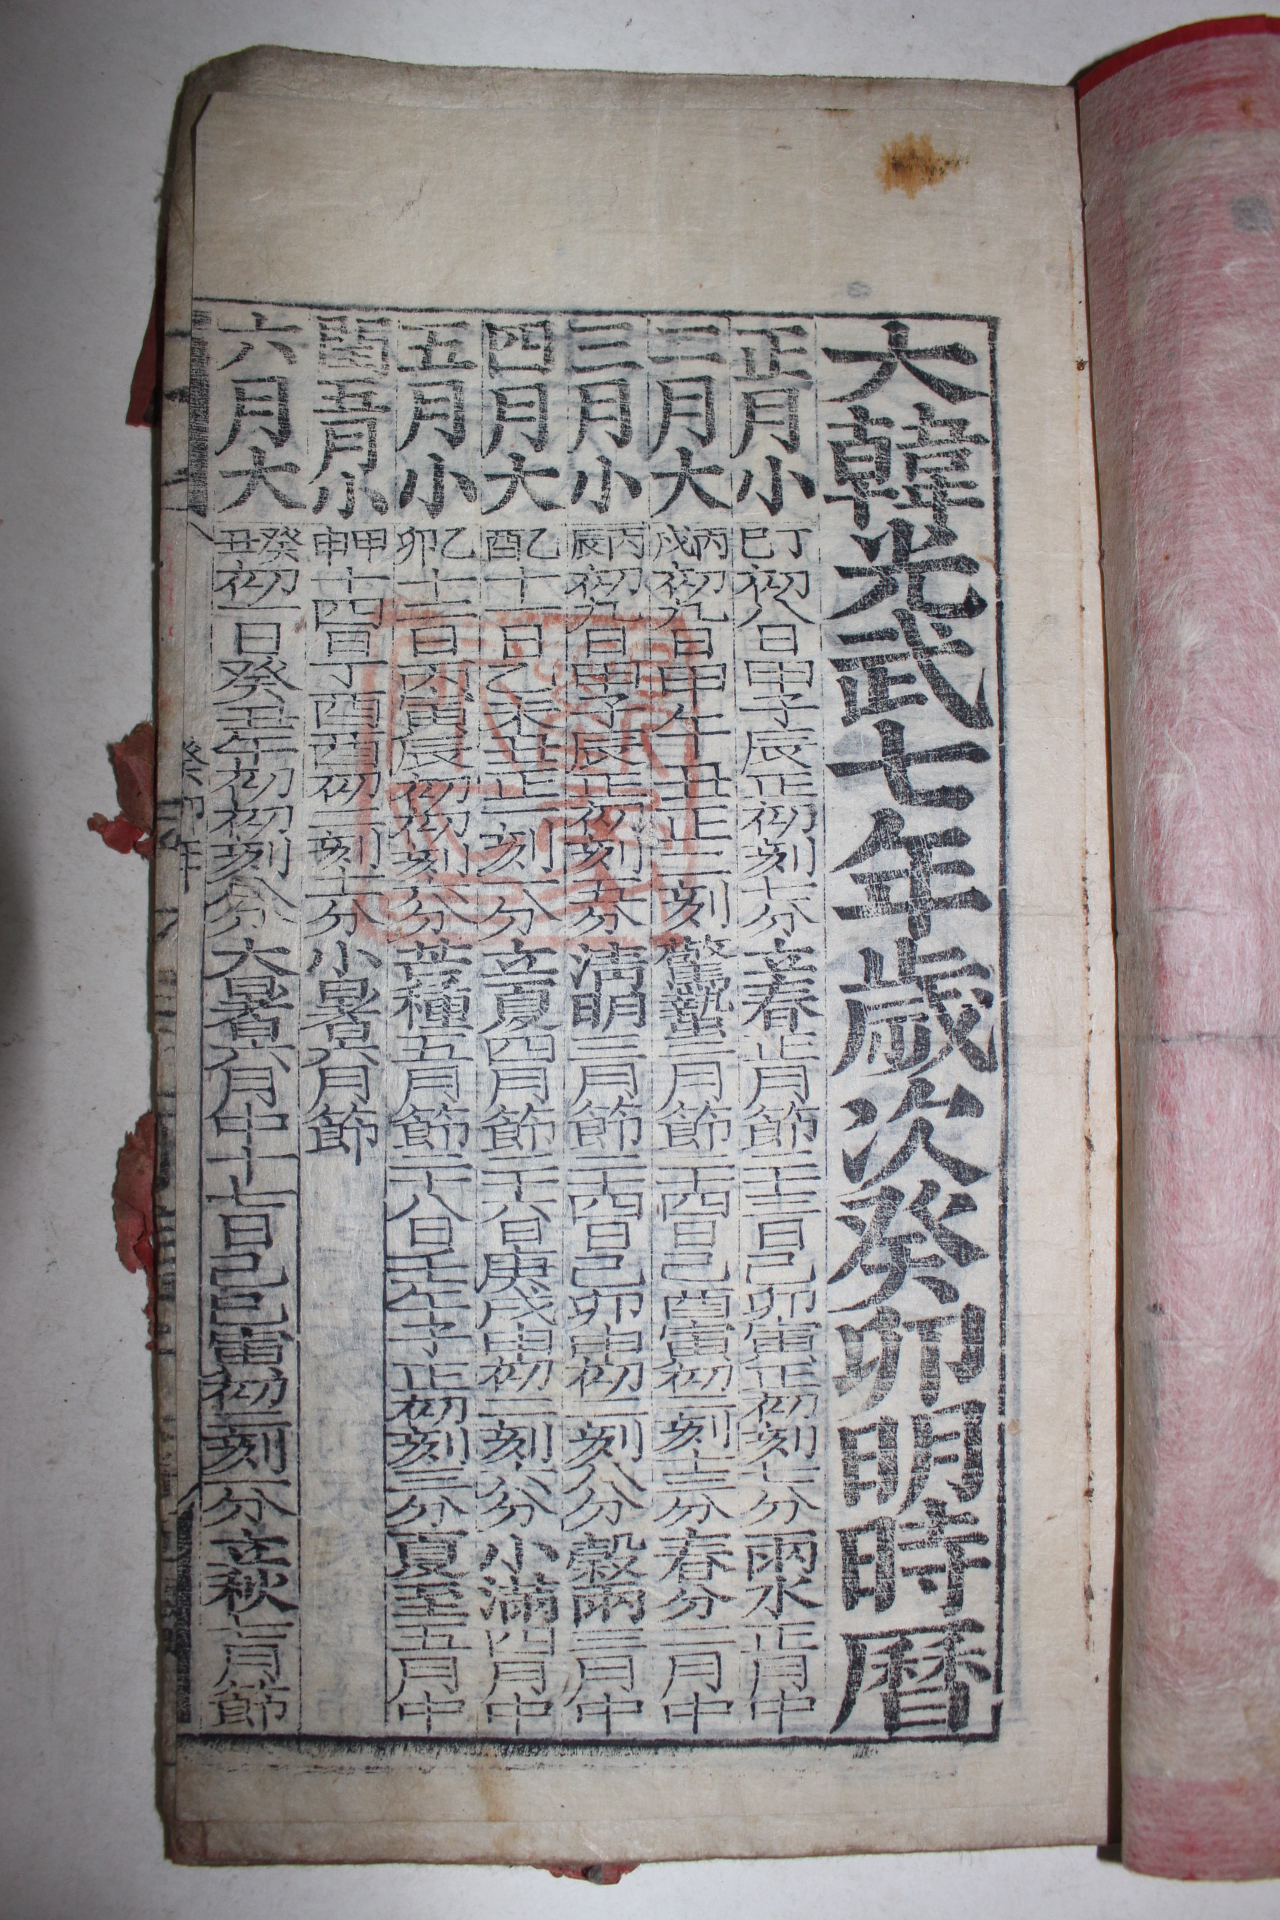 大韓光武七年歲次癸卯明時曆
正月小丁巳初八日甲子辰正初刻七分立春正月節二十三日己卯寅正初刻七分雨水正月中
二月大丙戌初九日甲午丑正二刻驚蟄二月節二十四日己酉寅初二刻十三分春分二月中
三月小丙辰初九日甲子辰正初刻五分淸明三月節二十四日己卯申初二刻八分穀雨三月中
四月大乙酉十一日乙未丑正二刻八分立夏四月節二十六日庚戌申初二刻六分小滿四月中
五月小乙卯十二日丙寅辰初初刻八分芒種五月節二十八日壬午子正初刻三分夏至五月中
閏五月小甲申十四日丁酉酉初二刻十分小暑六月節
六月大癸丑初一日癸丑午初初刻八分大暑六月中十七日己巳寅初二刻一分立秋七月節
癸卯年